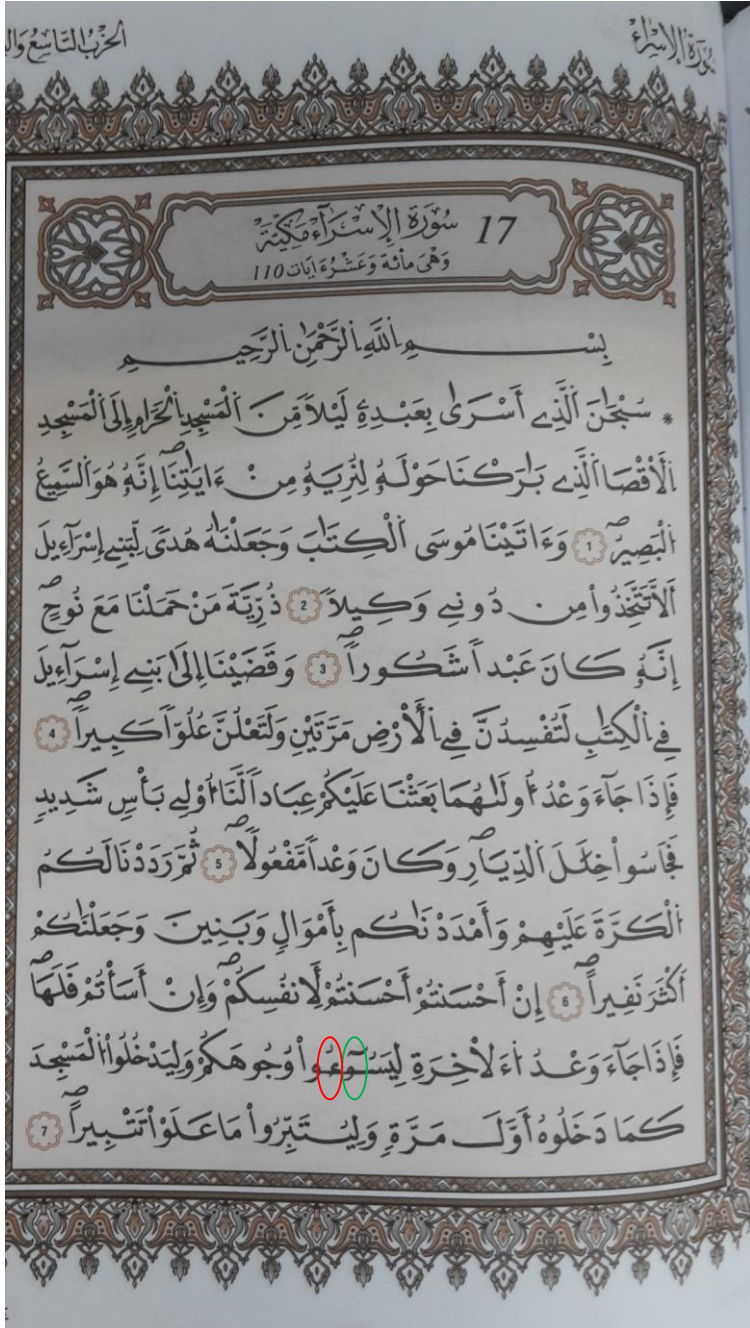 سُورَةُ الإِسْرَاءِ
الحِزْبُ التَّاسِعُ
17 سُورَةُ الإِسْرَآءِ مَكِّيَّة
وَهْيَ مِائَة وَعَشْرُ ءَايَات 110
بِسْمِ اِللَّهِ اِلرَّحْمَٰنِ اِلرَّحِيمِ
* سُبْحَٰنَ اَلَّذِے أَسْرَىٰ بِعَبْدِهِۦ لَيْلاٗ مِّنَ اَلْمَسْجِدِ اِلْحَرَامِ إِلَى اَلْمَسْجِدِ
اِلْأَقْصَا اَلَّذِے بَٰرَكْنَا حَوْلَهُۥ لِنُرِيَهُۥ مِنْ ءَايَٰتِنَآۖ إِنَّهُۥ هُوَ اَلسَّمِيعُ
اُلْبَصِيرُۖ 1 وَءَاتَيْنَا مُوسَى اَلْكِتَٰبَ وَجَعَلْنَٰهُ هُدىٗ لِّبَنِے إِسْرَآءِيلَ
أَلَّا تَتَّخِذُواْ مِن دُونِے وَكِيلاٗۖ 2 ذُرِّيَّةَ مَنْ حَمَلْنَا مَعَ نُوحٍۖ
إِنَّهُۥ كَانَ عَبْداٗ شَكُوراٗۖ 3 وَقَضَيْنَا إِلَىٰ بَنِے إِسْرَآءِيلَ
فِے اِلْكِتَٰبِ لَتُفْسِدُنَّ فِے اِلْأَرْضِ مَرَّتَيْنِ وَلَتَعْلُنَّ عُلُوّاٗ كَبِيراٗۖ 4
فَإِذَا جَآءَ وَعْدُ أُولَىٰهُمَا بَعَثْنَا عَلَيْكُمْ عِبَاداٗ لَّنَا أُوْلِے بَأْسٖ شَدِيدٖ
فَجَاسُواْ خِلَٰلَ اَلدِّيَارِۖ وَكَانَ وَعْداٗ مَّفْعُولاٗۖ 5 ثُمَّ رَدَدْنَا لَكُمُ
اُلْكَرَّةَ عَلَيْهِمْ وَأَمْدَدْنَٰكُم بِأَمْوَٰلٖ وَبَنِينَ وَجَعَلْنَٰكُمْ
أَكْثَرَ نَفِيراٗۖ 6 إِنْ أَحْسَنتُمْ أَحْسَنتُمْ لِأَنفُسِكُمْۖ وَإِنْ أَسَأْتُمْ فَلَهَاۖ
فَإِذَا جَآءَ وَعْدُ اُ۬ءَلَاخِرَةِ لِيَسُـُٔواْ وُجُوهَكُمْ وَلِيَدْخُلُواْ اُلْمَسْجِدَ
كَمَا دَخَلُوهُ أَوَّلَ مَرَّةٖ وَلِيُتَبِّرُواْ مَا عَلَوْاْ تَتْبِيراٗۖ 7